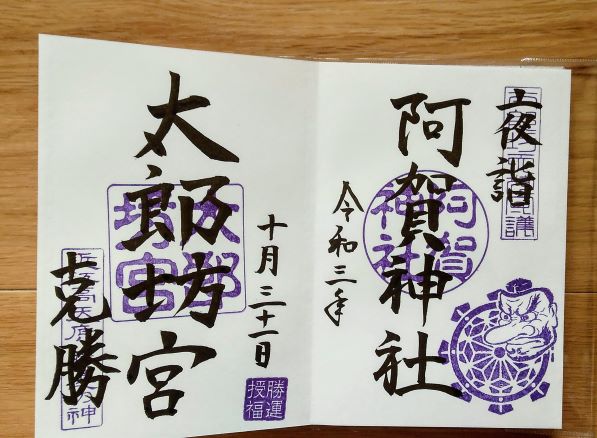 夜詣
阿賀神社
阿賀
神社
令和三年
十月三十一日
太郎坊宮
太郎
坊宮
勝運
授福
克勝